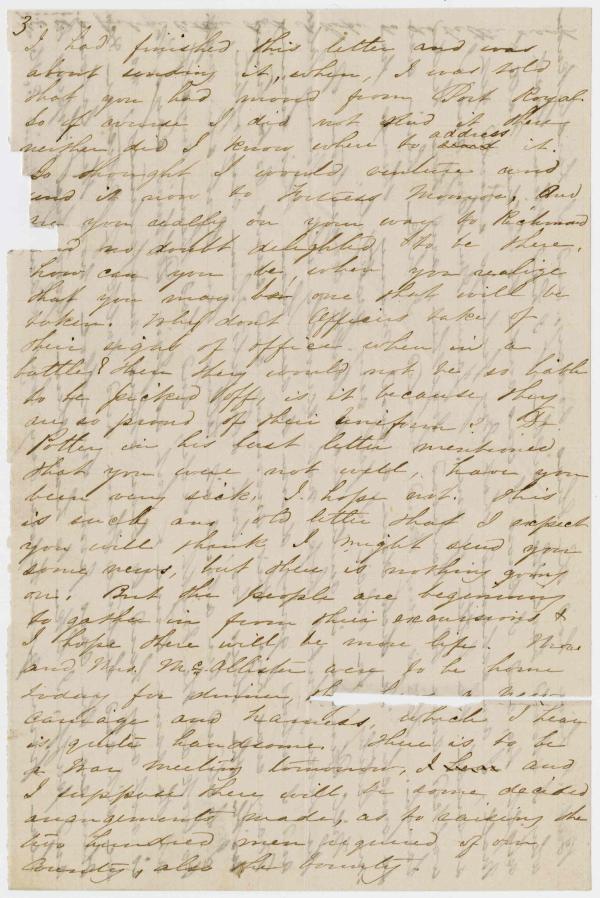 3
I had finished this letter and was
about sending it, when, I was told
that you had moved from Port Royal
so of course I did not send it then
neither did I know where to address send it.
So thought I would venture and
send it now to Fortress Monroe, and
are you really on your way to Richmond
and no doubt delighted to be there,
how can you be, when you realize
that you may be one that will be
taken. Why dont officers take of
their sight of office when in a
battle? then they would not be so liable
to be picked off, is it because they
are so proud of their uniform? Dr.
Potter in his last letter mentioned
that you were not well, have you
been very sick, I hope not. This
is such an old letter that I expect
you will think I might send you
some news, but there is nothing going
on. But the people are beginning
to gather in from their excursions &
I hope there will be more life. Mr
and Mrs. McAllister were to be home
today for dinner, a new
carriage and harness, which I hear
is quite handsome. There is to be
a War meeting tomorrow, and
I suppose there will be some decided
arrangements made, as to raising the
two hundred men required of our
County, also the bounty.